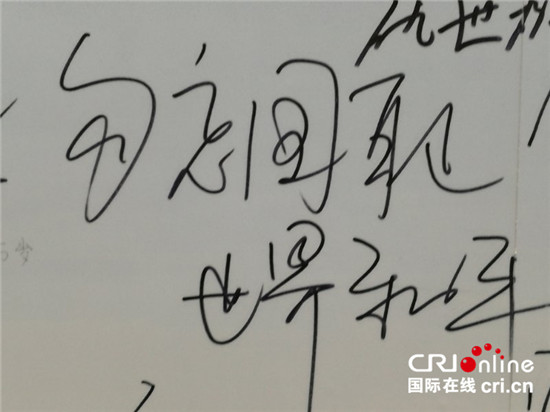 勿忘国耻
世界和平
CRIonline
国际在线 cri.cn